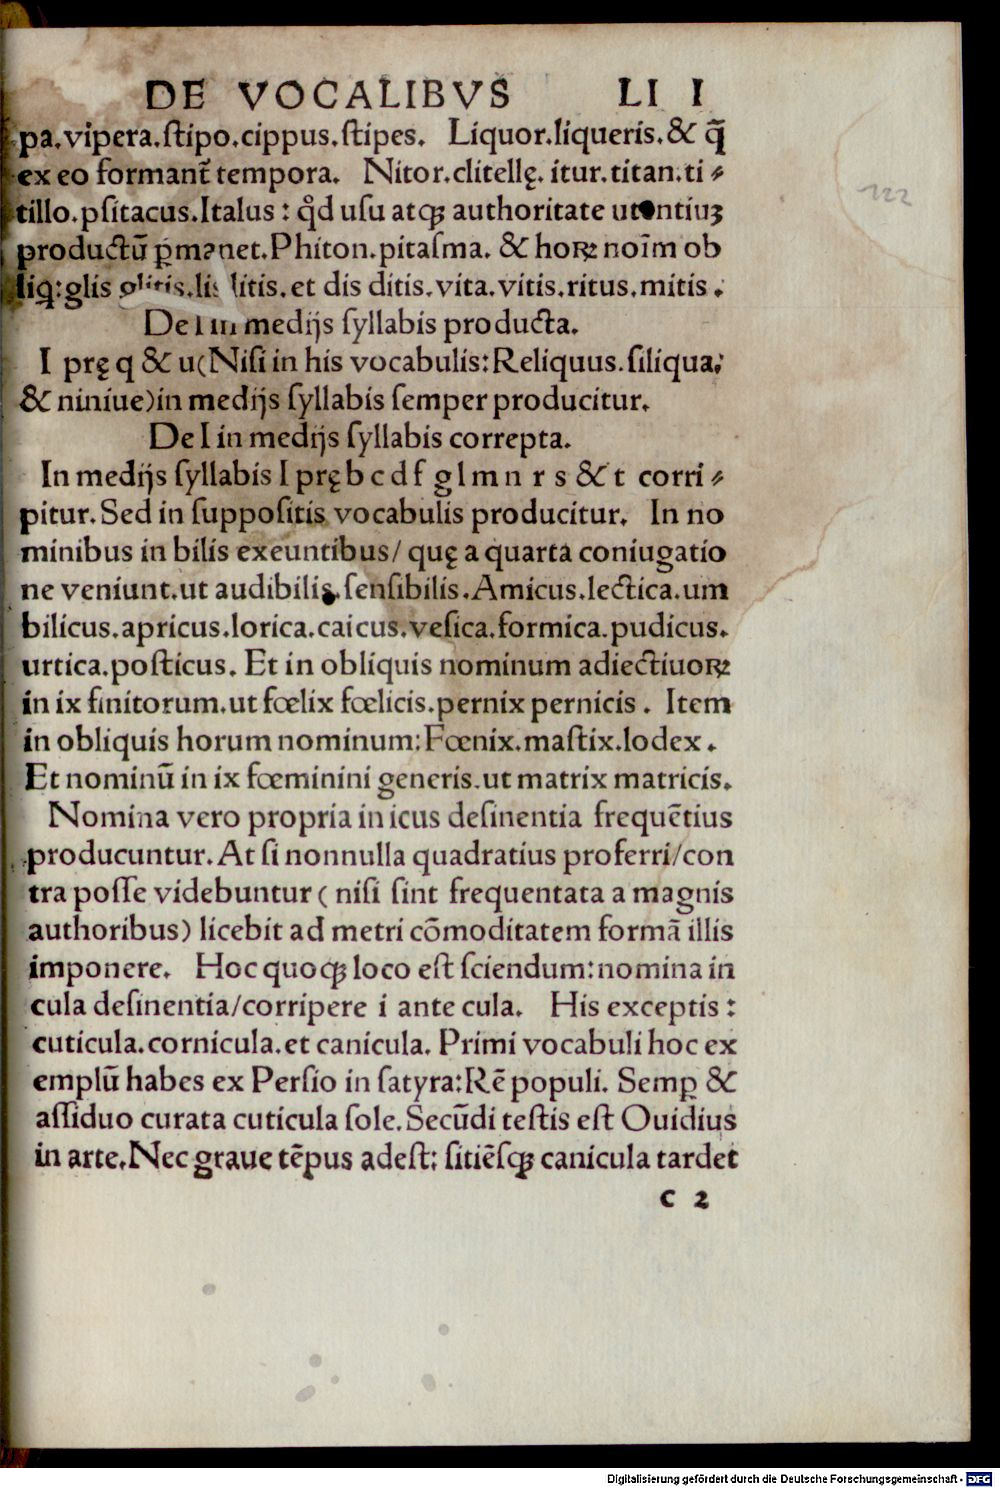 DE VOCALIBVS LI I
122
pa.vipera.ſtipo.cippus.ſtipes. Liquor.liqueris.& q̄
ex eo formant̄ tempora. Nitor.clitellę. itur.titan.ti⸗
tillo.pſitacus.Italus: qd̓ uſu atqꝫ authoritate utentiuꝫ
productū ꝑmanet.Phiton.pitaſma. & hoꝝ noīm ob
liq̄:glis glitis.lis litis.et dis ditis.vita.vitis.ritus.mitis.
De I in medijs ſyllabis producta.
I prę q & u(Niſi in his vocabulis:Reliquus.siliqua:
& niniue)in medijs ſyllabis ſemper producitur.
De I in medijs ſyllabis correpta.
In medijs ſyllabis I prę b c d f g l m n r s & t corri⸗
pitur.Sed in ſuppoſitis vocabulis producitur. In no
minibus in bilis exeuntibus/ quę a quarta coniugatio
ne veniunt.ut audibilis.ſenſibilis.Amicus.lectica.um
bilicus.apricus.lorica.caicus.veſica.formica.pudicus.
urtica.poſticus. Et in obliquis nominum adiectiuoꝝ
in ix finitorum.ut fœlix fœlicis.pernix pernicis. Item
in obliquis horum nominum:Fœnix.maſtix.lodex.
Et nominū in ix fœminini generis.ut matrix matricis.
Nomina vero propria in icus deſinentia frequētius
producuntur.At ſi nonnulla quadratius proferri/con
tra poſſe videbuntur ( niſi ſint frequentata a magnis
authoribus) licebit ad metri cōmoditatem formā illis
imponere. Hoc quoqꝫ loco eſt ſciendum:nomina in
cula deſinentia/corripere i ante cula. His exceptis:
cuticula.cornicula.et canicula. Primi vocabuli hoc ex
emplū habes ex Perſio in ſatyra:Rē populi. Semꝑ &
aſſiduo curata cuticula ſole.Secūdi teſtis eſt Ouidius
in arte.Nec graue tēpus adeſt: ſitiēſqꝫ canicula tardet
c 2
Digitalisierung gefördert durch die Deutsche Forschungsgemeinschaft - DFG